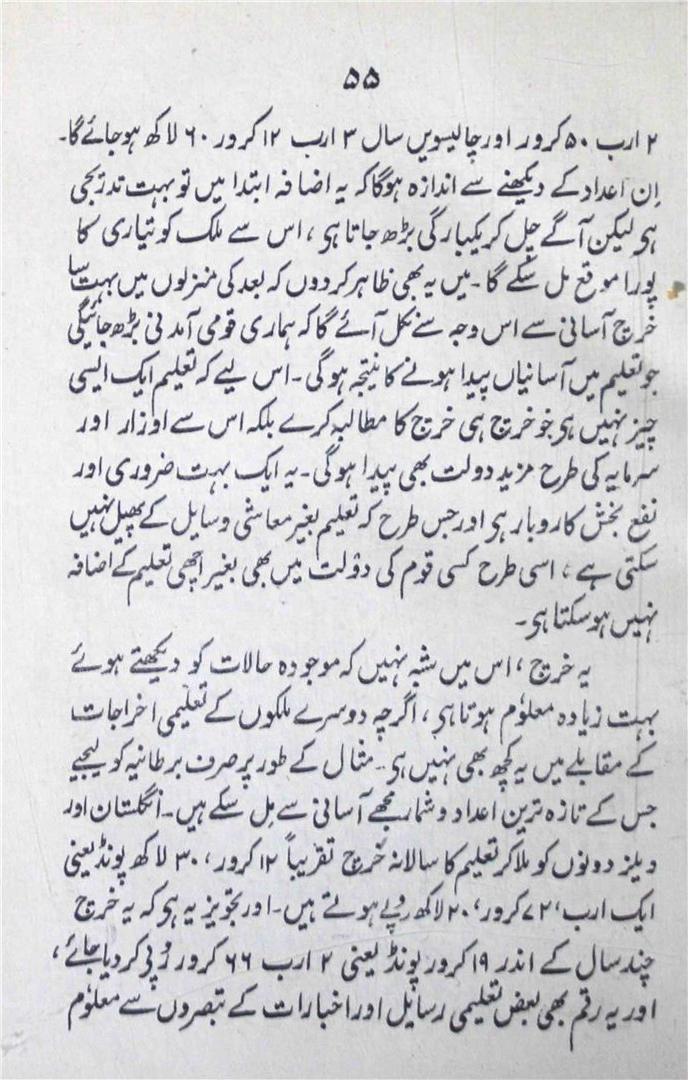 ۵۵
۲ ارب ۵۰ کرور اور چالیسویں سال ۳ ارب ۱۲ کرور ۶۰ لاکھ ہوجائے گا۔
اِن اعداد کے دیکھنے سے اندازہ ہوگا کہ یہ اضافہ ابتدا میں تو بہت تدریجی
ہی لیکن آگے چل کر یکبارگی بڑھ جاتا ہی، اس سے ملک کو تیاری کا
پورا موقع مل سکے گا۔ میں یہ بھی ظاہر کردوں کہ بعد کی منزلوں میں بہت سا
خرچ آسانی سے اس وجہ سے نکل آئے گا کہ ہماری قومی آمدنی بڑھ جائیگی
جو تعلیم میں آسانیاں پیدا ہونے کا نتیجہ ہوگی۔ اس لیے کہ تعلیم ایک ایسی
چیز نہیں ہی جو خرچ ہی خرچ کا مطالبہ کرے بلکہ اس سے اوزار اور
سرمایہ کی طرح مزید دولت بھی پیدا ہوگی۔ یہ ایک بہت ضروری اور
نفع بخش کاروبار ہی اور جس طرح کہ تعلیم بغیر معاشی وسایل کے پھیل نہیں
سکتی ہے، اسی طرح کسی قوم کی دولت میں بھی بغیر اچھی تعلیم کے اضافہ
نہیں ہوسکتا ہی۔
یہ خرچ، اس میں شبہ نہیں کہ موجودہ حالات کو دیکھتے ہوئے
بہت زیادہ معلوم ہوتا ہی، اگرچہ دوسرے ملکوں کے تعلیمی اخراجات
کے مقابلے میں یہ کچھ بھی نہیں ہی۔ مثال کے طور پر صرف برطانیہ کو لیجیے
جس کے تازہ ترین اعداد و شمار مجھے آسانی سے مِل سکے ہیں۔ انگلستان اور
ویلز دونوں کو ملاکر تعلیم کا سالانہ خرچ تقریباً ۱۲ کرور، ۳۰ لاکھ پونڈ یعنی
ایک ارب، ۷۲ کرور، ۲۰ لاکھ رپے ہوتے ہیں۔ اور تجویز یہ ہی کہ یہ خرچ
چند سال کے اندر ۱۹ کرور پونڈ یعنی ۲ ارب ۶۶ کرور رُپی کردیا جائے،
اور یہ رقم بھی بعض تعلیمی رسایل اور اخبارات کے تبصروں سے معلوم